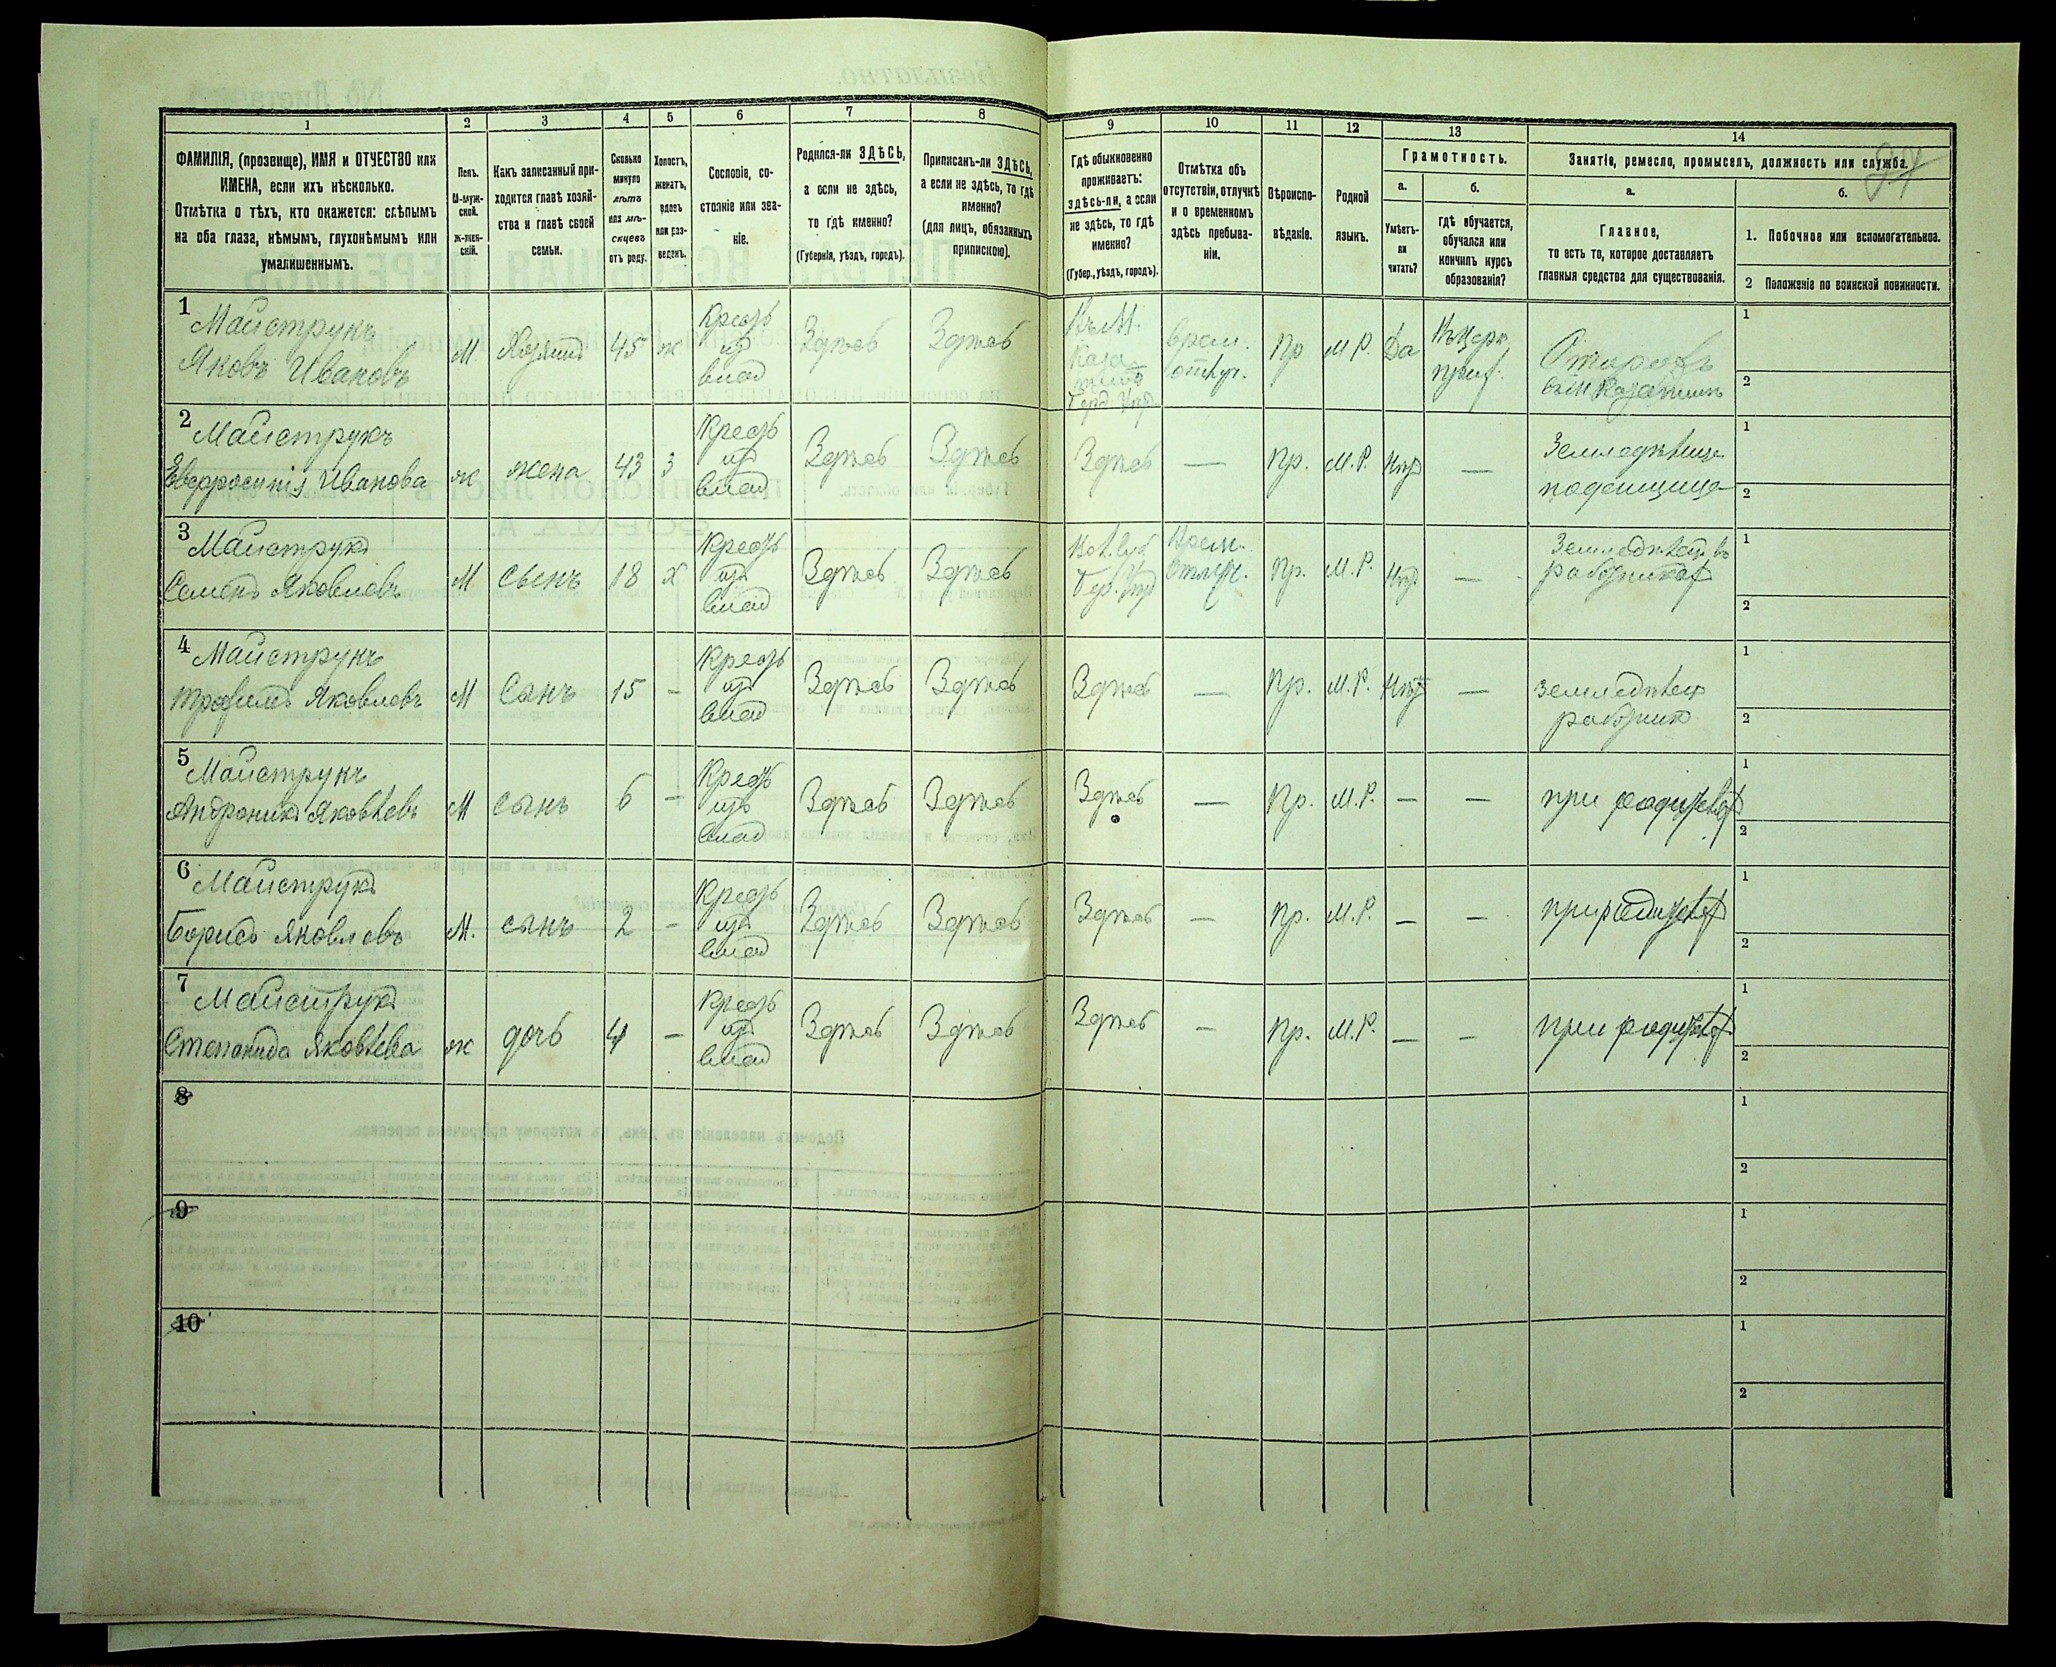 1 2 3 4 5 6 7 8 9 10 11 12 13 14
ФАМИЛІЯ, (прозвище), ИМЯ и ОТЧЕСТВО или
ИМЕНА, если ихъ нѣсколько.
Отмѣтка о тѣхъ, кто окажется: слѣпымъ
на оба глаза, нѣмымъ, глухонѣмымъ или
умалишеннымъ.
Полъ.
М-муж-
ской.
Ж-жен-
скій.
Какъ записанный при-
ходится главѣ хозяй-
ства и главѣ своей
семьи.
Сколько
минуло
лѣтъ
или мѣ-
сяцевъ
отъ роду.
Холостъ,
женатъ,
вдовъ
или раз-
веденъ.
Сословіе, со-
стояніе или зва-
ніе.
Родился-ли ЗДѢСЬ,
а если не здѣсь,
то гдѣ именно?
(Губернія, уѣздъ, городъ).
Приписанъ-ли ЗДѢСЬ,
а если не здѣсь, то гдѣ
именно?
(для лицъ, обязанныхъ
припискою).
Гдѣ обыкновенно
проживаетъ:
здѣсь-ли, а если
не здѣсь, то гдѣ
именно?
(Губер., уѣздъ, городъ).
Отмѣтка объ
отсутствіи, отлучкѣ
и о временномъ
здѣсь пребыва-
ніи.
Вѣроиспо-
вѣданіе.
Родной
языкъ.
Грамотность.
а.
Умѣетъ-
ли
читать?
б.
гдѣ обучается,
обучался или
кончилъ курсъ
образованія?
Занятіе, ремесло, промыселъ, должность или служба.
а.
Главное,
то есть то, которое доставляетъ
главныя средства для существованія.
б.
1. Побочное или вспомогательное.
2 Положеніе по воинской повинности.
1
Майструкъ
Яковъ Ивановъ
М
Хозяинъ
45
ж
Крестъ
изъ
влад
Здѣсь
Здѣсь
Врем.
отлуч.
Пр
М.Р.
Да
1
2
2
Майструкъ
Евфросинія Иванова
ж
жена
43
з
Крестъ
изъ
влад
Здѣсь
Здѣсь
Здѣсь
—
Пр.
М.Р.
Нѣтъ
—
поденщица
1
2
3
Майструкъ
Семенъ Яковлевъ
М
сынъ
18
х
Крестъ
изъ
влад
Здѣсь
Здѣсь
Врем.
отлуч.
Пр.
М.Р.
Нѣтъ
—
1
2
4
Майструкъ
Трофимъ Яковлевъ
М
Сынъ
15
—
Крестъ
изъ
влад
Здѣсь
Здѣсь
Здѣсь
—
Пр.
М.Р.
Нѣтъ
—
работник
1
2
5
Майструкъ
Андроникъ Яковлевъ
М
сынъ
6
—
Крестъ
изъ
влад
Здѣсь
Здѣсь
Здѣсь
—
Пр.
М.Р.
—
—
при родителях
1
2
6
Майструкъ
Борисъ Яковлевъ
М.
сынъ
2
—
Крестъ
изъ
влад
Здѣсь
Здѣсь
Здѣсь
—
Пр.
М.Р.
—
—
при родителях
1
2
7
Майструкъ
Степанида Яковлева
ж
дочь
4
—
Крестъ
изъ
влад
Здѣсь
Здѣсь
Здѣсь
—
Пр.
М.Р.
—
—
при родителях
1
2
8
1
2
9
1
2
10
1
2